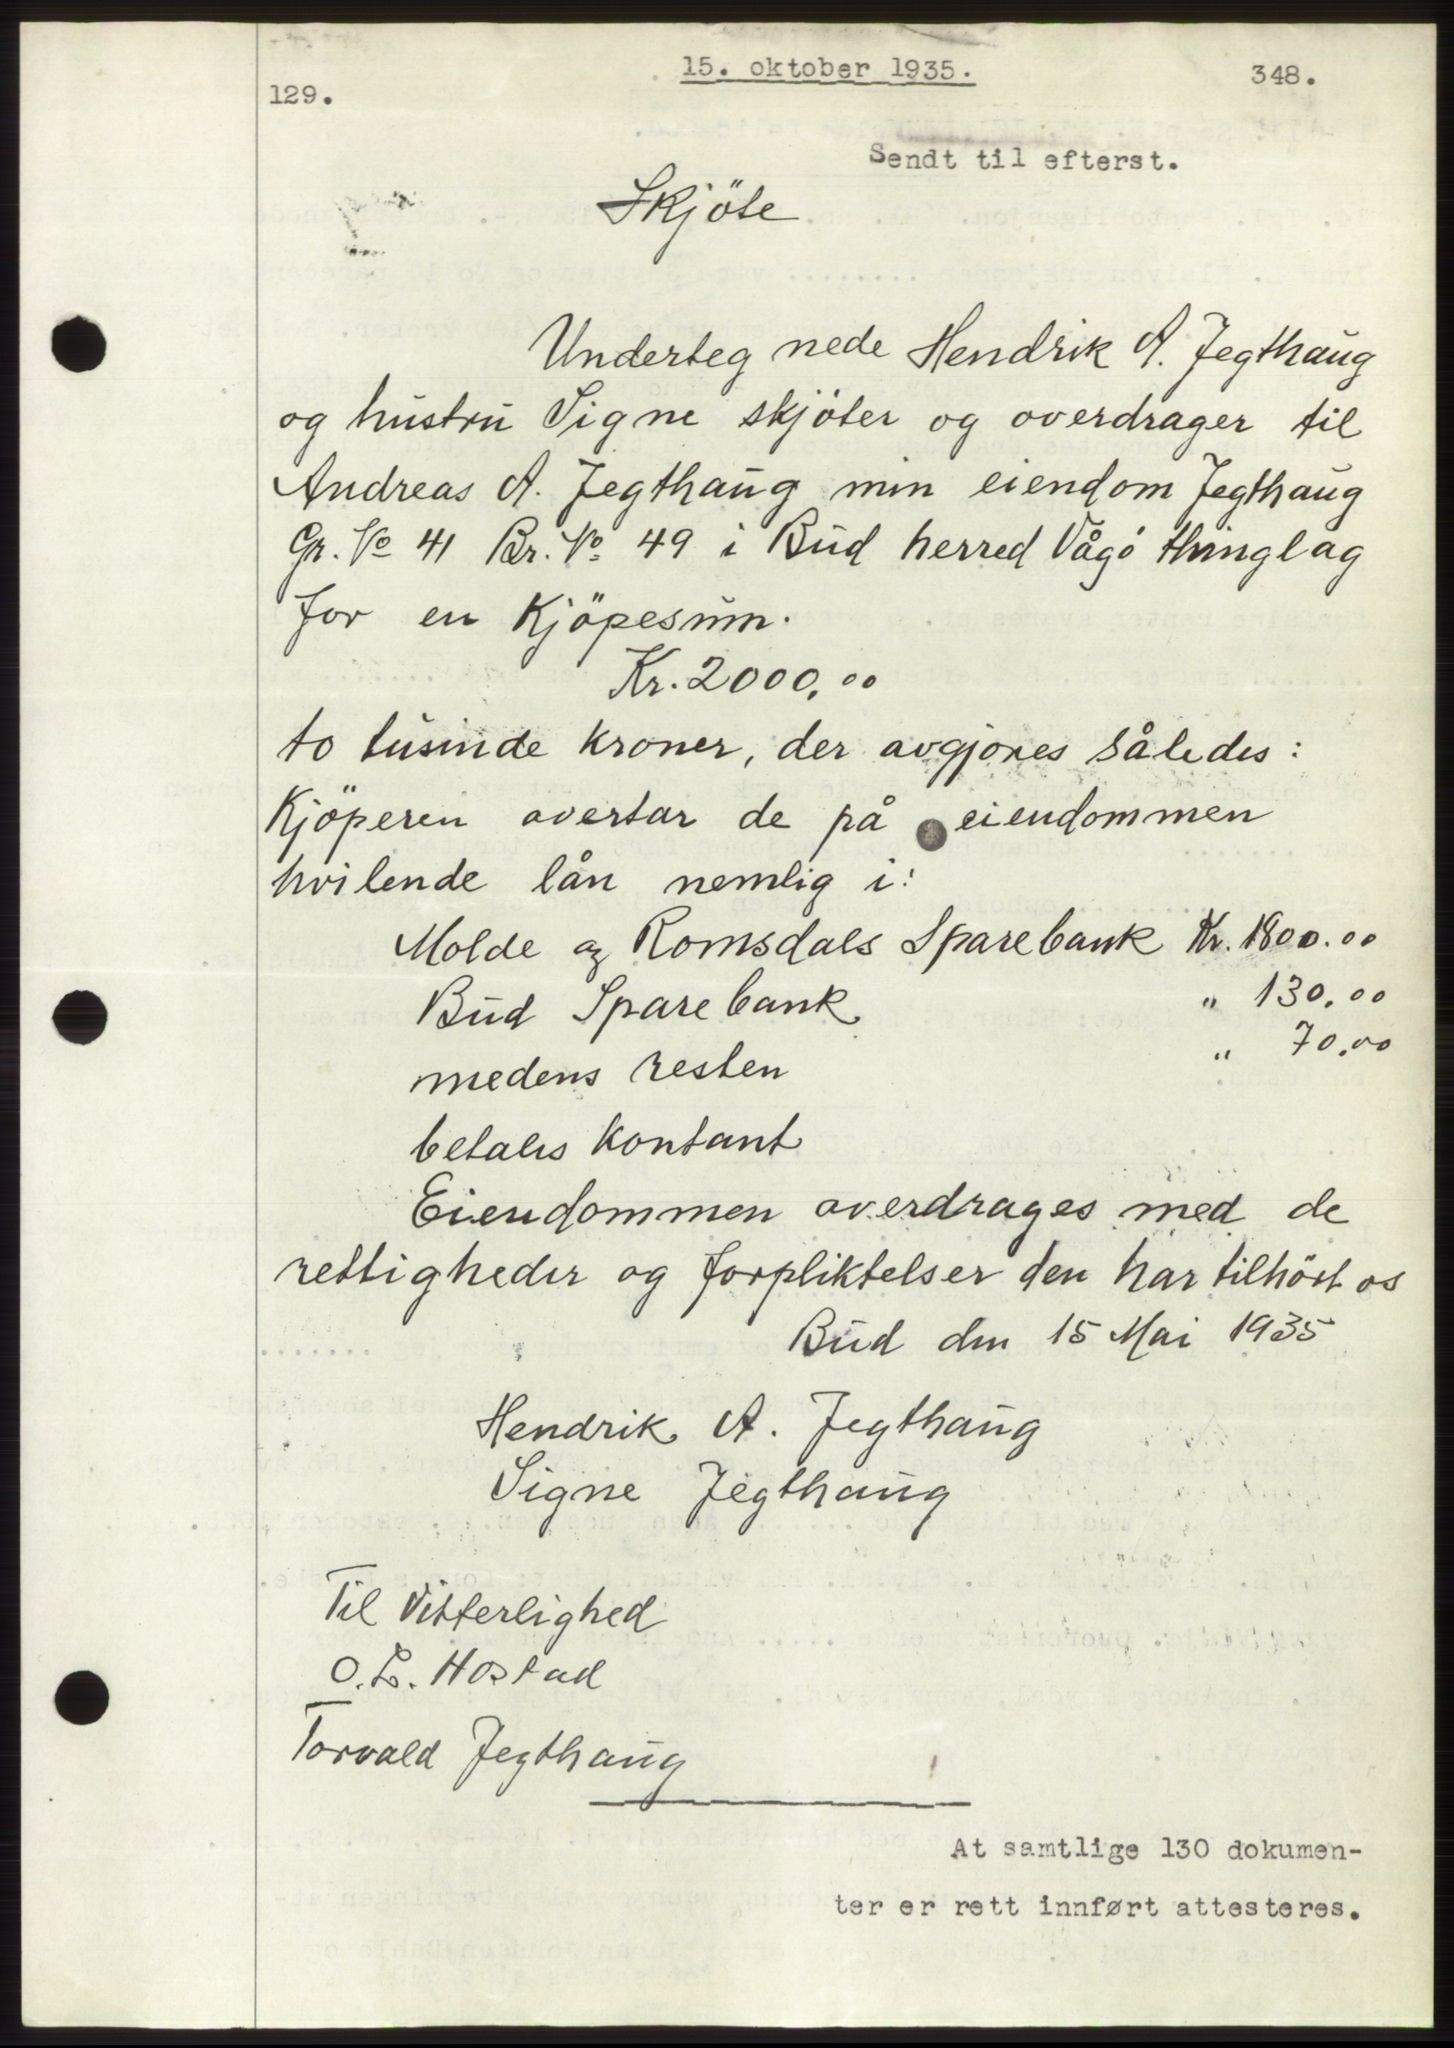 15. oktober 1935.
348.
129.
Sendt til efterst.
Skjöte
Underteg nede Hendrik A. Jegthaug
og hustru Signe skjöter og overdrager til
Andreas A. Jegthaug min eiendom Jegthaug
Gr. No 41 Br. No 49 i Bud herred Vågö thinglag
for en Kjöpesum.
Kr. 2000,00
to tusinde kroner, der avgjöres således:
Kjöperen overtar de på eiendommen
hvilende lån nemlig i:
Molde og Romsdals Sparebank Kr. 1800.00
Bud Sparebank " 130.00
medens resten " 70.00
betales kontant
Eiendommen overdrages med de
rettigheder og forpliktelser den har tilhört os
Bud den 15 Mai 1935
Hendrik A. Jegthaug
Signe Jegthaug
Til Vitterlighed
O. L. Hostad
Torvald Jegthaug
At samtlige 130 dokumen-
ter er rett innført attesteres.